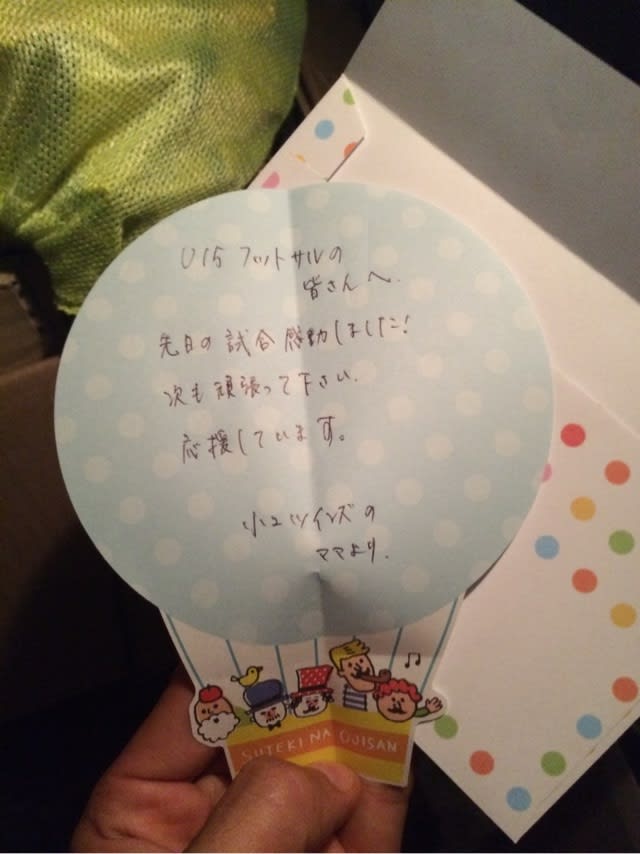 U15 フットサルの
皆さんへ.
先日の試合感動しました!
次も頑張って下さい.
応援しています。
小2ツインズの
ママより.
SUTEKI NA OJISAN